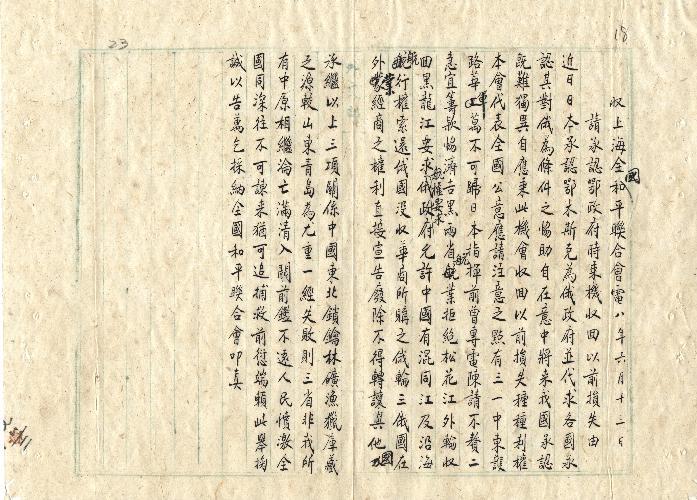 18
23
收上海全國和平聯合會電 八年六月十三日
請承認鄂政府時乘機收回以前損失由
近日日本承認鄂木斯克為俄政府並代求各國承
認其對俄為條件之協助自在意中將來我國承認
既難獨異自應乘此機會收回以前損失種種利權
本會代表全國公意應請注意之點有三一中東鐵
路華軍萬不可歸日本指揮前曾專電陳請不贅二
急宜籌款協濟吉黑兩省航業拒絕松花江外輪收
回黑龍江航權要求俄政府允許中國有混同江及沿海
航行權索還俄國没收華商所購之俄輪三俄國在
外蒙經商之權利直接宣告廢除不得轉讓與他國
承繼以上三項關係中國東北鎖鑰林礦漁獵庫藏
之源較山東青島為尤重一經失敗則三省非我所
有中原相繼淪亡滿清入關前鑑不遠人民憤激全
國同深往不可諫来猶可追補救前愆端賴此舉掬
誠以告萬乞採納全國和平聯合會叩真